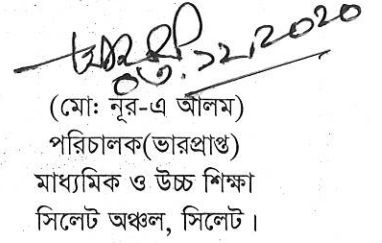 ০৩.১২.২০২০
(মো: নূর-এ আলম)
পরিচালক(ভারপ্রাপ্ত)
মাধ্যমিক ও উচ্চ শিক্ষা
সিলেট অঞ্চল, সিলেট।